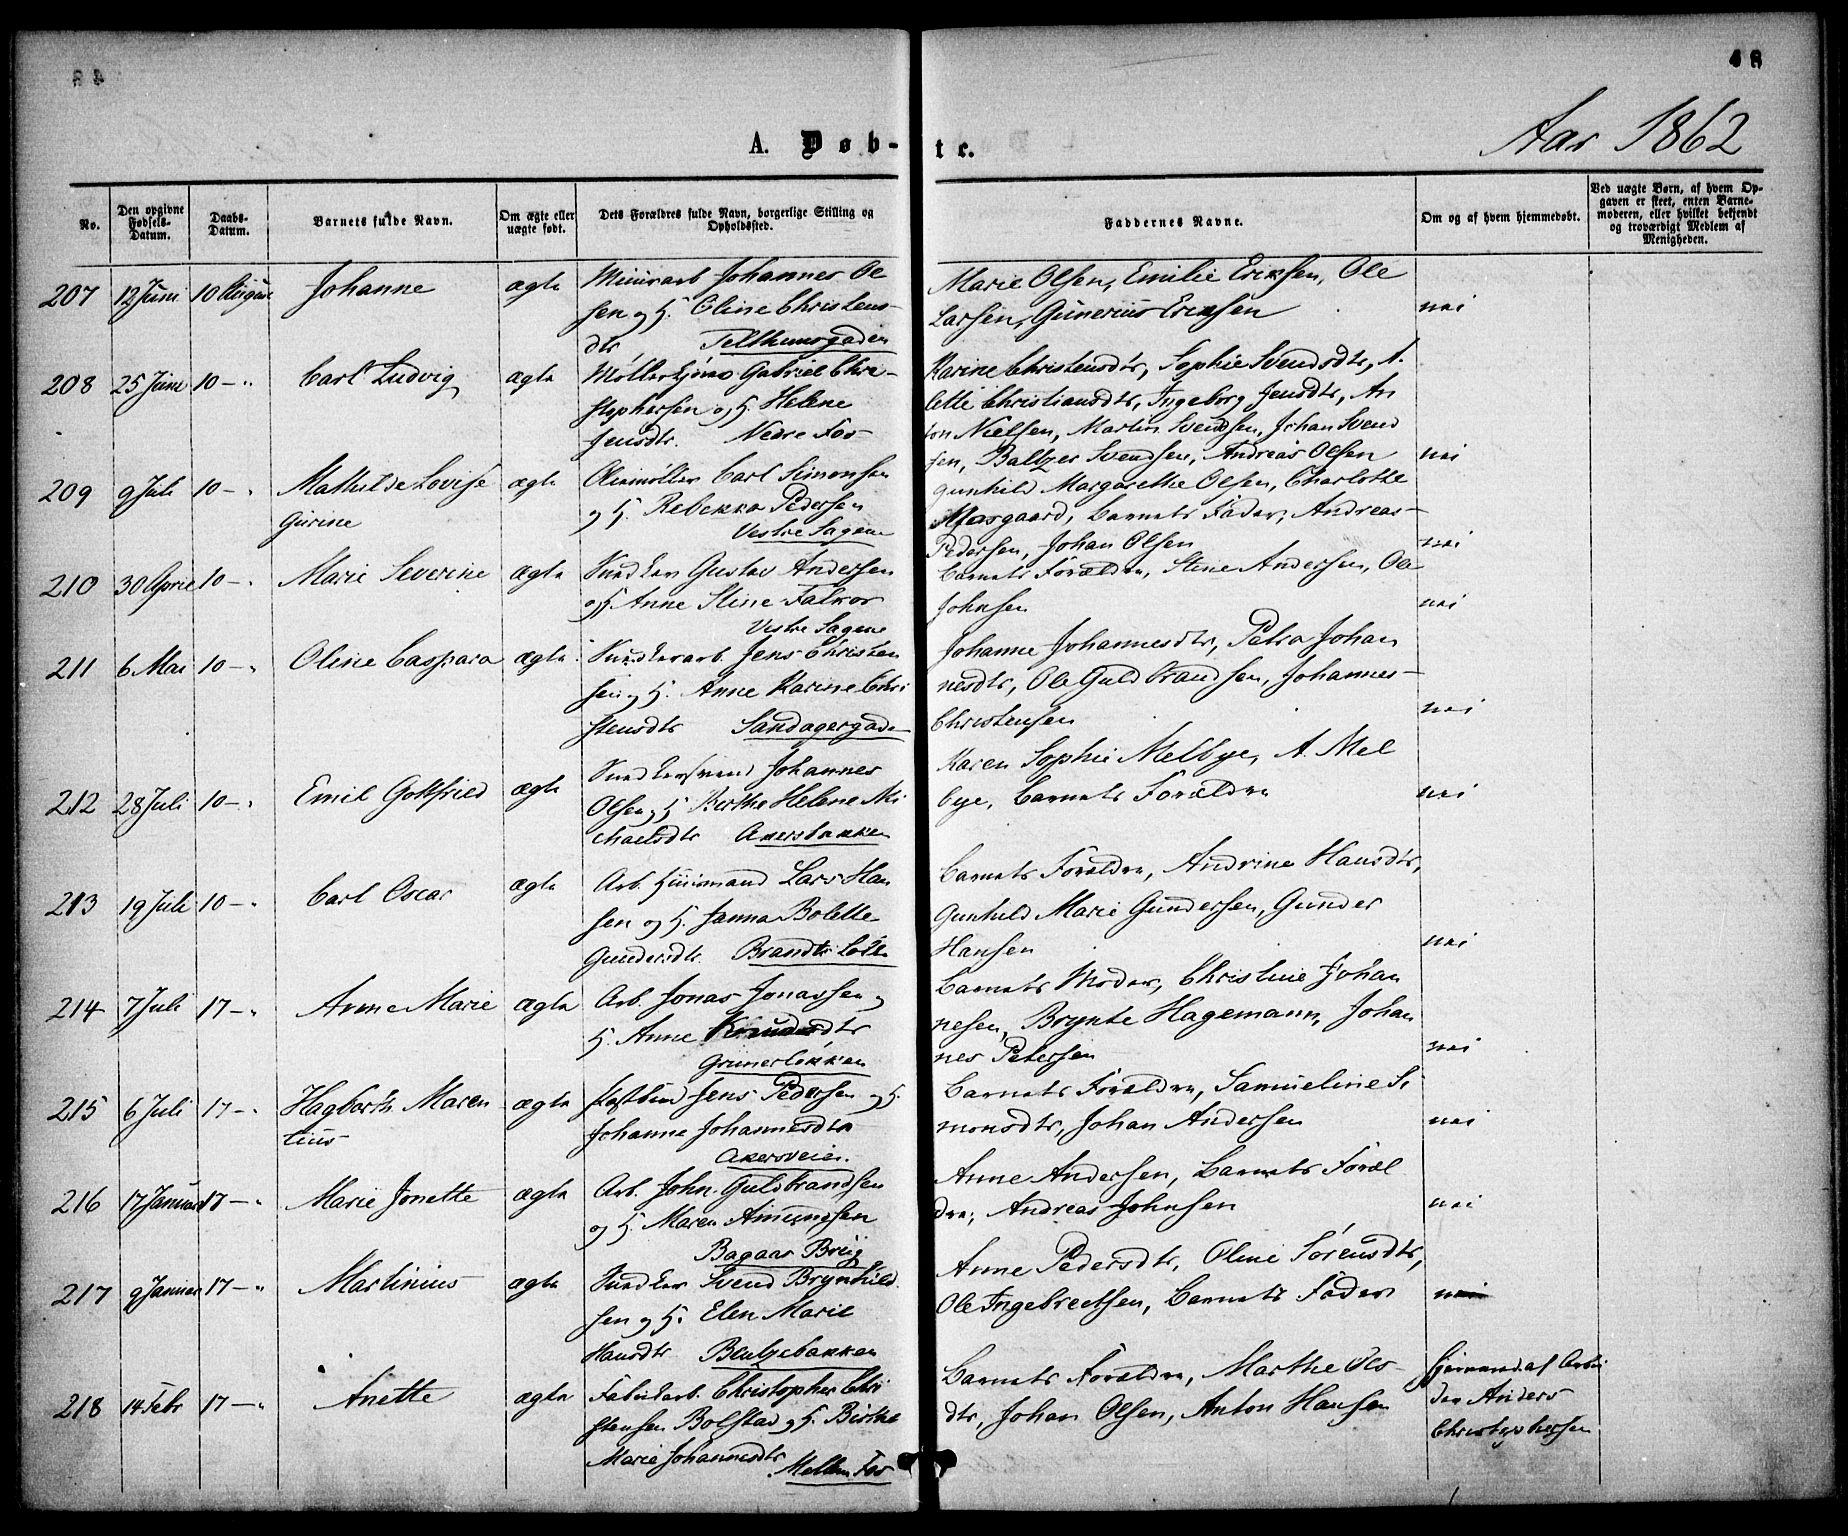 48
A. Døb-te.
Aar 1862
No.
Den opgivne Fødsels-Datum.
Daabs-Datum.
Barnets fulde Navn.
Om ægte eller uægte født.
Dets Forældres fulde Navn, borgerlige Stilling og Opholdssted.
Faddernes Navne.
Om og af hvem hjemmedøbt.
Ved uægte Børn, af hvem Opgaven er skeet, enten Barnemoderen, eller hvilket bekjendt og troværdigt Medlem af Menigheden.
207 12 Juni 10 August Johanne ægte Muurarb Johannes Ol
sen og H. Oline Christens-
dtr Telthusgaden
Marie Olsen, Emilie Eriksen, Ole
Larsen, Gunerius Eriksen nei
208 25 Juni 10 - " Carl Ludvig ægte Møllerhjmd. Gabriel Chri-
stophersen og H. Helene
Jensdtr. Nedre Fos
Karine Christensdtr, Sophie Svendsdtr, A.
lette Christiansdtr, Ingeborg Jensdtr, An
ton Nielsen, Martin Svendsen, Johan Svend
sen, Baltzer Svendsen, Andreas Olsen nei
209 9 Juli 10 - " Mathilde Lovise
Gurine
ægte Oliemøller Carl Simonsen
og H. Rebekka Pedersen
Vestre Sagene
Gunhild Margarethe Olsen, Charlotte
Mosgaard, Barnets Fader, Andreas
Pedersen, Johan Olsen nei
210 30 April 10 - " Marie Severine ægte Snedker Gustav Andersen
og H. Anne Stine Falkor
Vestre Sagene
Barnets Forældre, Stine Andersen, Ole
Johnsen nei
211 6 Mai 10 - " Oline Caspara ægte Snedkerarb. Jens Christen
sen og H. Anne Karine Chri
stensdtr Sandagergaden
Johanne Johannesdtr, Petra Johan
nesdtr, Ole Guldbrandsen, Johannes
Christensen nei
212 28 Juli 10 - " Emil Gotfried ægte Snedkersvend Johannes
Olsen og H Berthe Helene Mi
chaelsdtr Akersbakken
Karen Sophie Melbye, A. Mel
bye, Barnets Forældre nei
213 19 Juli 10 - " Carl Oscar ægte Arb. Huusmand Lars Han
sen og H. Janna Bolette
Gundersdtr. Brandts Løkke
Barnets Forældre, Andrine Hansdtr,
Gunhild Marie Gundersen, Gunder
Hansen nei
214 7 Juli 17 - " Anne Marie ægte Arb. Jonas Jonassen og
H. Anne Knudsdtr
Grünerløkken
Barnets Moder, Christine Johan
nesen, Brynte Hagemann, Johan
nes Petersen nei
215 6 Juli 17 - " Hagbarth Maren
tius
ægte Postbud Jens Pedersen og H.
Johanne Johannesdtr
Akersveien.
Barnets Forældre, Samueline Si
monsdtr, Johan Andersen nei
216 17 Januar 17 - " Marie Jonette ægte Arb. John Guldbrandsen
og H. Maren Amundsen
Bagaas Brug
Anne Andersen, Barnets Foræl
dre, Andreas Johnsen nei
217 9 Januar 17 - " Martinius ægte Snedker Svend Brynhild
sen og H. Elen Marie
Hansdtr Bentzebakken
Anne Pedersdtr, Oline Sørensdtr,
Ole Ingebretsen, Barnets Fader nei
218 14 Febr 17 - " Anette ægte Fabrikarb. Christopher Chri
stensen Bolstad og H. Berthe
Marie Johannesdtr
Mellem Fos
Barnets Forældre, Marthe Ols
dtr, Johan Olsen, Anton Hansen
Hjemmed. af Arbei
der Anders
Christophersen